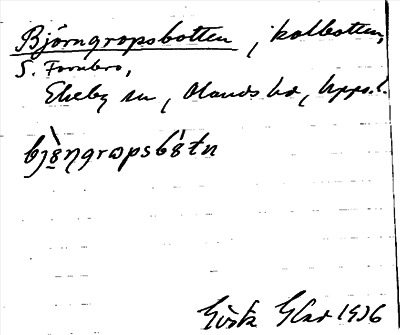 Björngropsbotten, kolbotten,
S. Fornbro,
Ekeby sn, Olands hd, Upps. l.
bjö̀ŋgrωpsbát̄n
Gösta Glad 1916